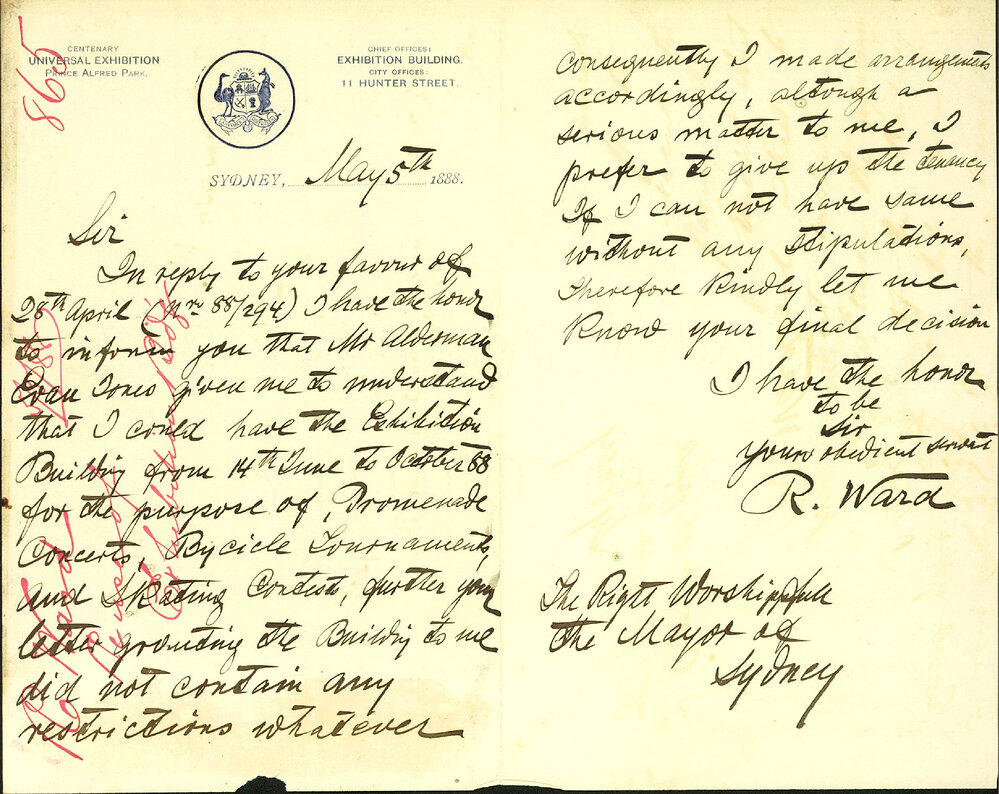 865
CENTENARY
UNIVERSAL EXHIBITION
PRINCE ALFRED PARK.
CHIEF OFFICES:
EXHIBITION BUILDING.
CITY OFFICES:
11 HUNTER STREET.
SYDNEY, May 5th 1888.
Sir
In reply to your favour of
28th April (Nro 88/294) I have the honor
to inform you that Mr Alderman
Evan Jones given me to understand
that I could have the Exhibition
Building from 14th June to October 88
for the purpose of, Promenade
Concerts, Bycicle Tournaments,
and Skating Contests, further your
letter granting the Building to me
did not contain any
restrictions whatever
consequently I made arrangements
accordingly, altough a
serious matter to me, I
prefer to give up the tenancy
If I can not have same
without any stipulations,
Therefore kindly let me
know your final decision
I have the honor
to be
Sir
your obedient servant
R. Ward
The Right Worshippfull
the Mayor of
Sydney
R Ward
Exhibition Bldg